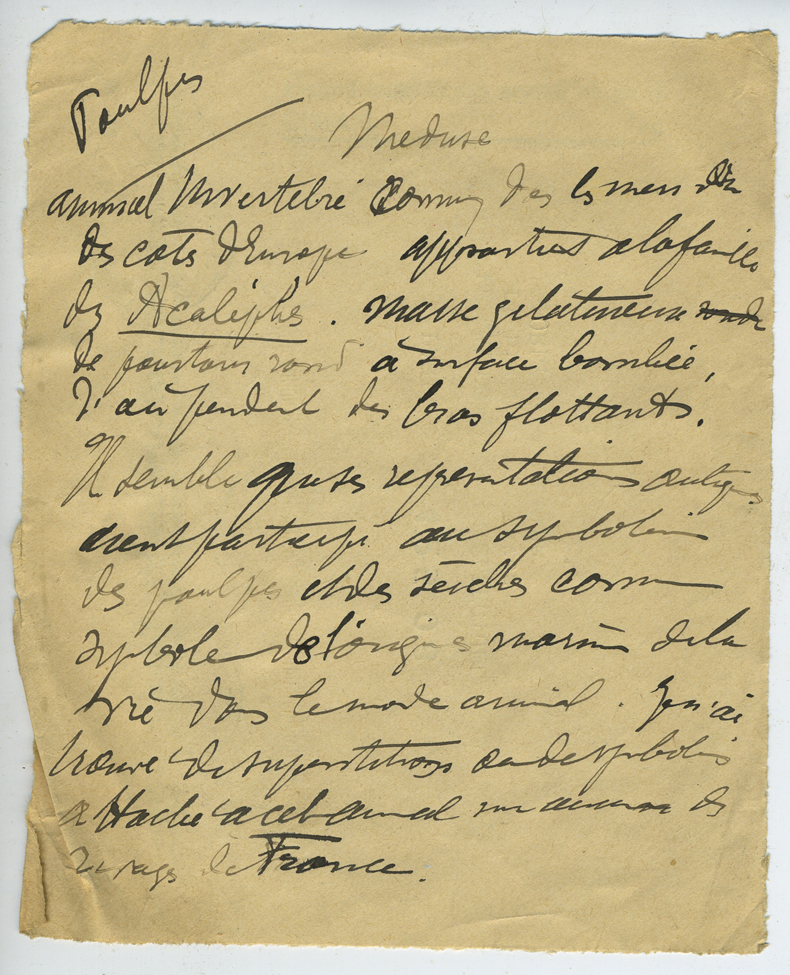 Poulpes
Meduse
animal Invertebré Connu des les mers
des cots d'Europe appartient a la famille
des Acalèphes. masse gelatineuse ronde
de pourtour rond à surface bombée,
d'où pendent des bras flottants.
Il semble que ses representations antiques
aient participé au symbolisme
des poulpes et des seiches comme
symbole de l'origine marine de la
vie dans le monde animal. Je n'ai
trouvé de superstitions ou de symbolisme
attaché a cet animal sur aucun des
rivages de France.